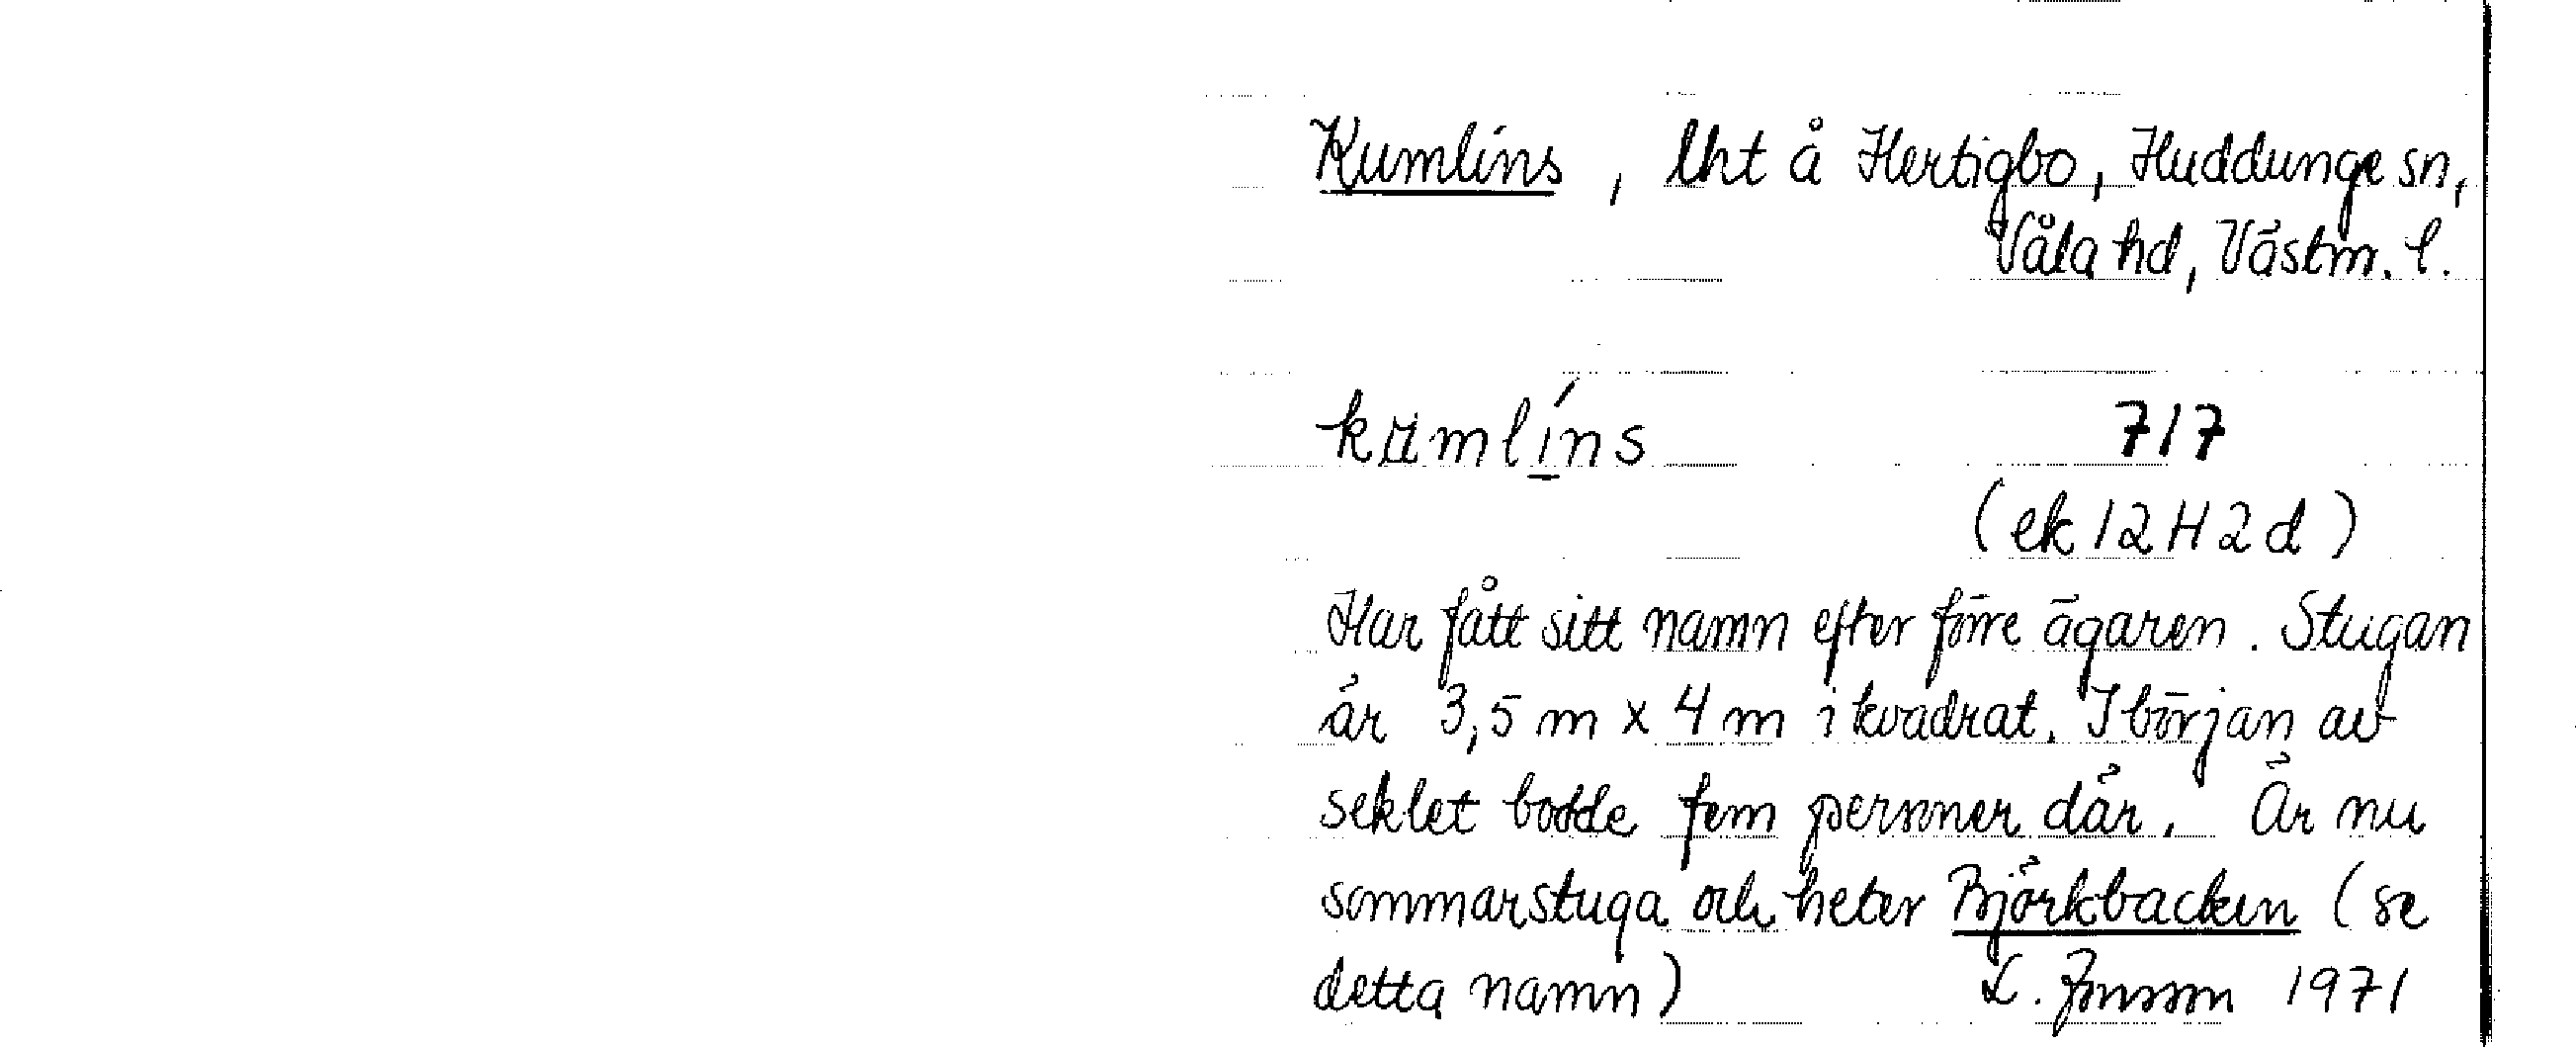 Kumlins, lht å Hertigbo, Huddunge sn,
Våla hd, Västm. l.
kumlíns 717
(ek 12H2d)
Har fått sitt namn efter förre ägaren. Stugan
är 3,5 m x 4 m i kvadrat. I början av
seklet bodde fem personer där. Är nu
sommarstuga och heter Björkbacken (se
detta namn) L. Jonsson 1971